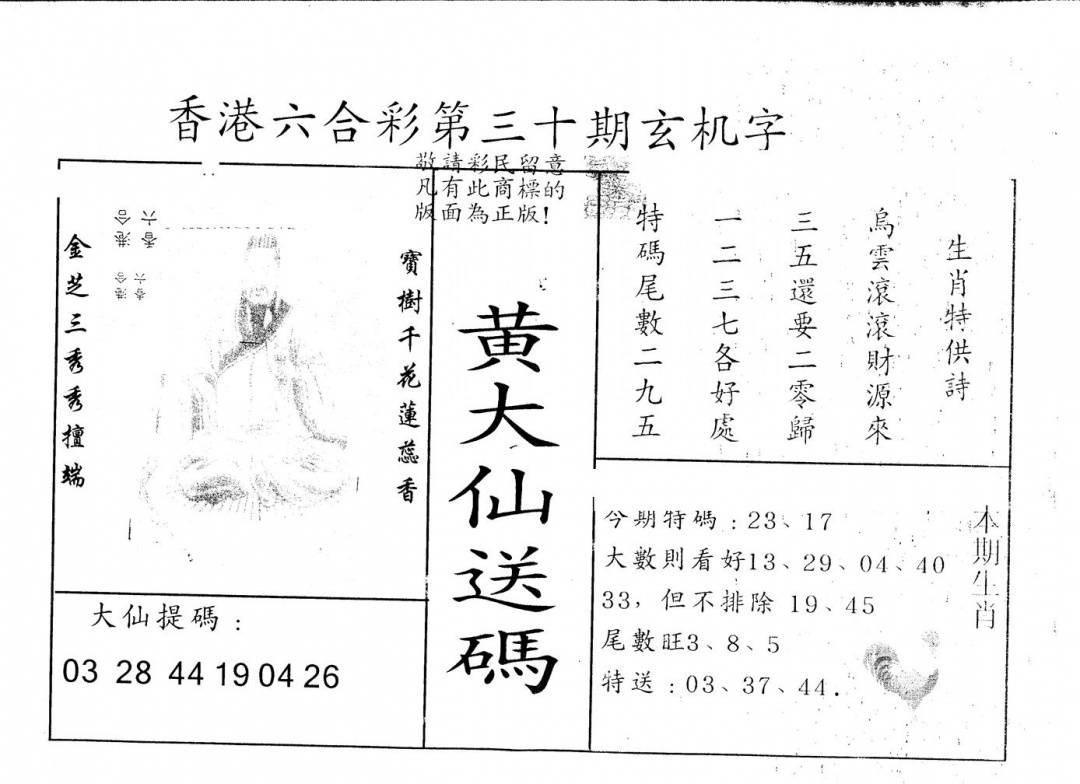 香港六合彩第三十期玄机字
敬請彩民留意
凡有此商標的
版面為正版！
生肖特供詩
烏雲滾滾財源來
三五還要二零歸
一二三七各好處
特碼尾數二九五
黄大仙送碼
寶樹千花蓮蕊香
金芝三秀秀擅端
香六
港合
香六
港合
大仙提碼：
03 28 44 19 04 26
本期生肖
今期特碼：23、17
大數則看好13、29、04、40
33，但不排除 19、45
尾數旺3、8、5
特送：03、37、44．